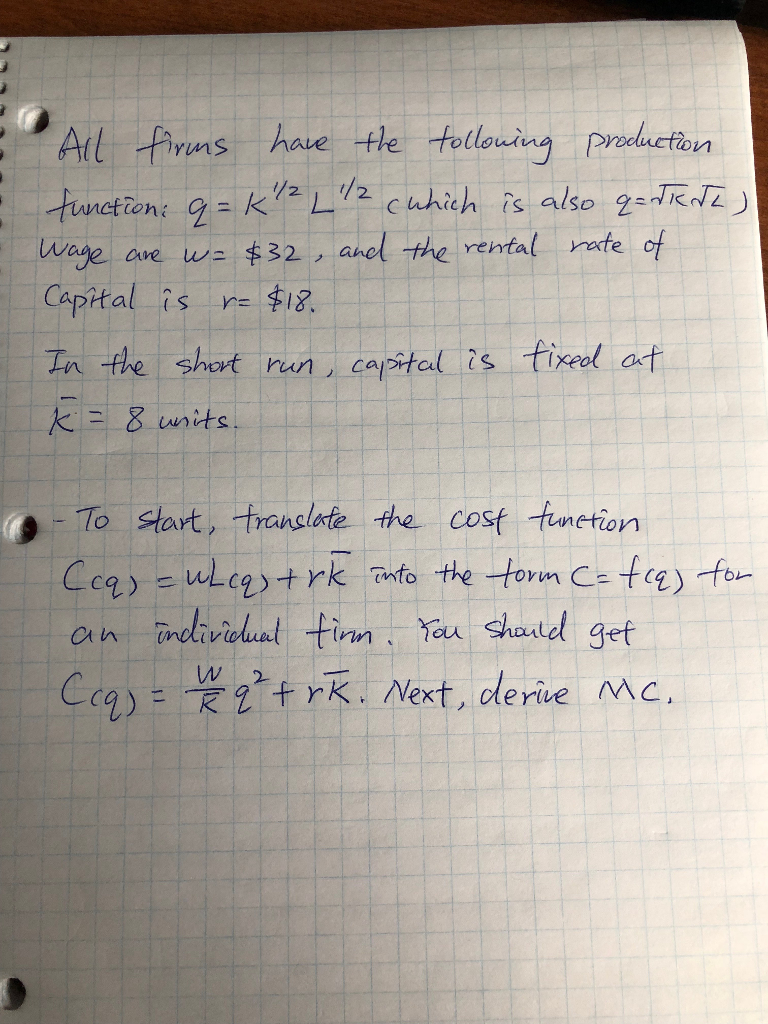 All firms have the following production
function: q = K^1/2 L^1/2 (which is also q=√K√L)
Wage are w= $32, and the rental rate of
Capital is r= $18.
In the short run, capital is fixed at
k̄ = 8 units.
- To start, translate the cost function
C(q) = wL(q) + rk̄ into the form C= f(q) for
an individual firm. You should get
C(q) = w/k̄ q² + rk̄. Next, derive MC.